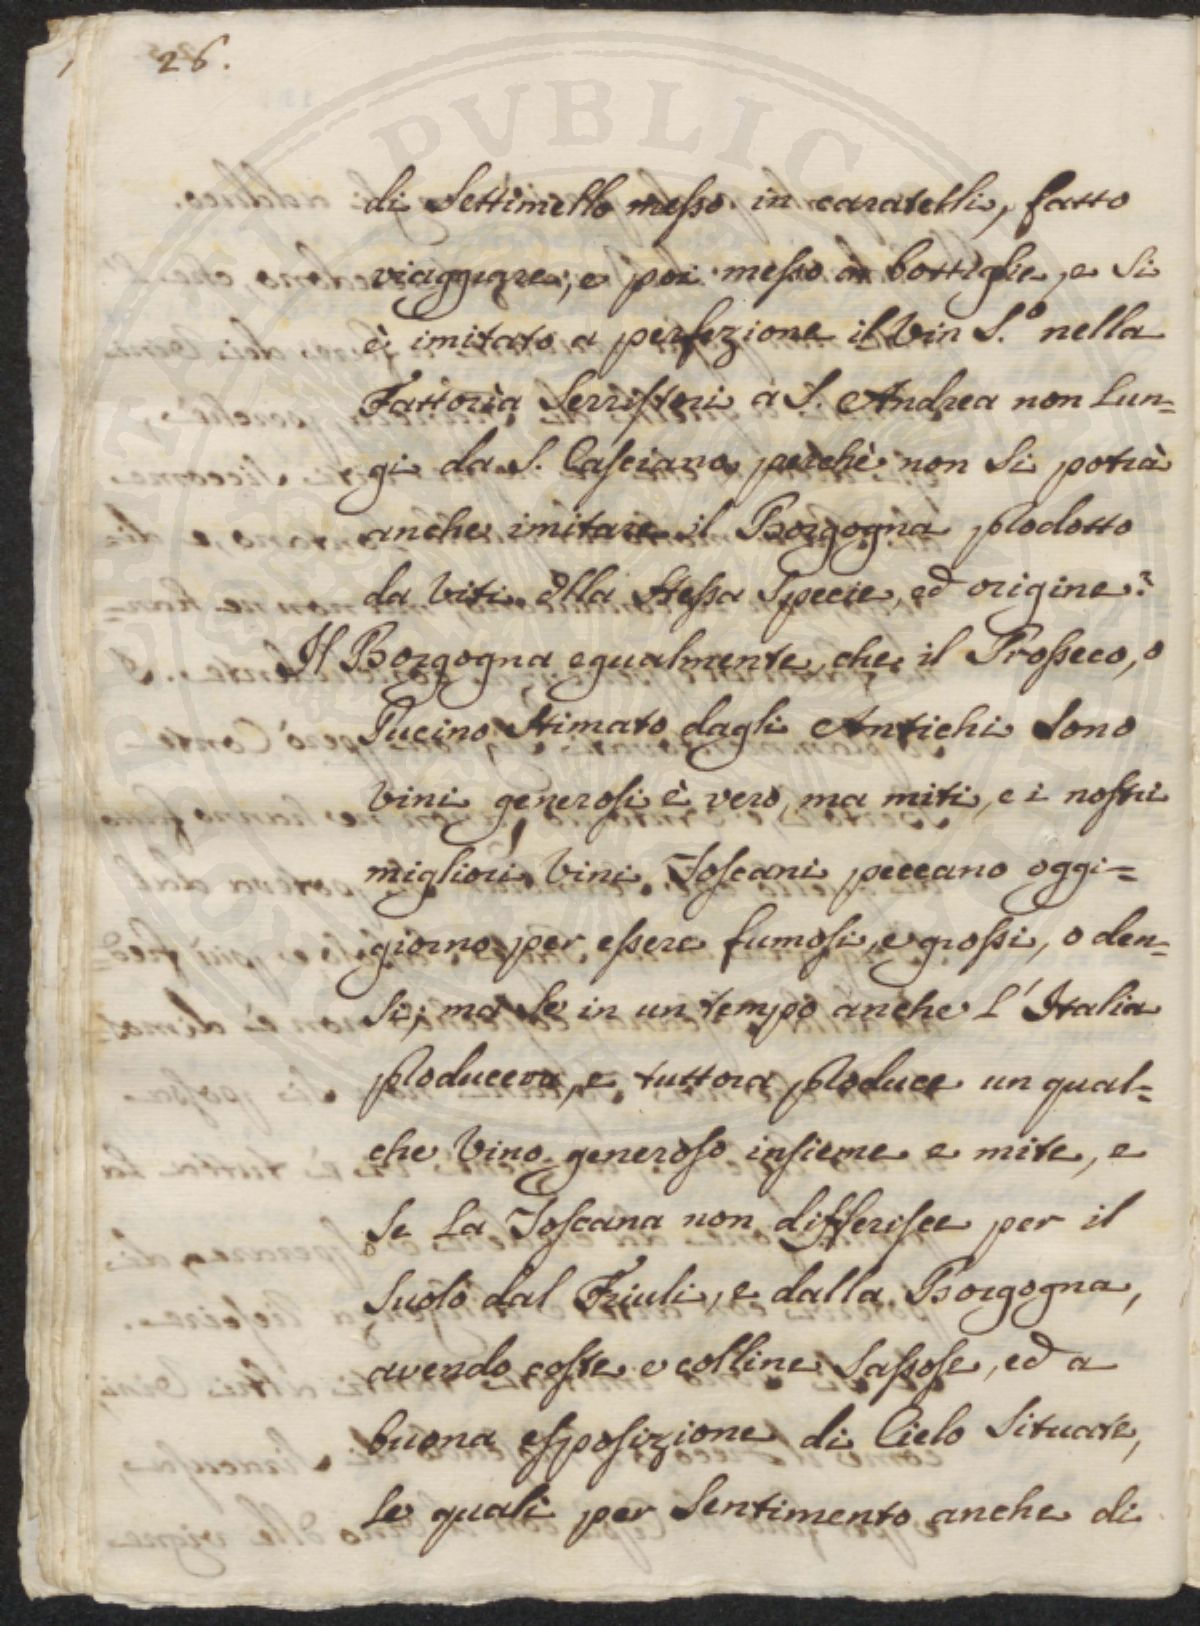 26.
di Settimello messo in caratelli, fatto
viaggiare, e poi messo in bottiglie, e si
è imitato a perfezione il Vin S.º nella
Fattoria Serristori a S. Andrea non lun=
gi da S. Casciano, perchè non si potrà
anche imitare il Borgogna prodotto
da viti della stessa specie, ed origine?
Il Borgogna egualmente, che il Prosseco, o
Pucino stimato dagli Antichi sono
vini generosi è vero, ma miti, e i nostri
migliori vini Toscani peccano oggi=
giorno per essere fumosi, e grossi, o den=
si; ma se in un tempo anche l'Italia
produceva, e tuttora produce un qual=
che vino generoso insieme e mite, e
se la Toscana non differisce per il
suolo dal Friuli, e dalla Borgogna,
avendo coste e colline sassose, ed a
buona esposizione di Cielo situate,
le quali per sentimento anche di
PVBLIC